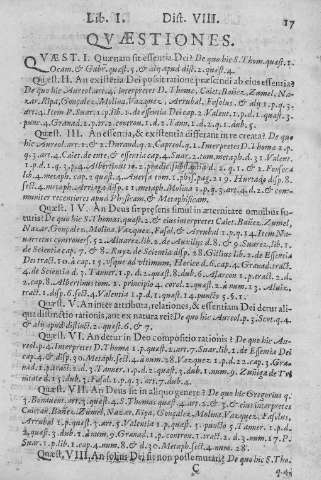 Lib. I. Dist. VIII. 17
QVÆSTIONES.
QVÆST. I. Quænam sit essentia Dei? De quo hic S. Thom. quæst. 1.
Ocam. & Gabr. quæst. 3. & alij apud dist. 2. quæst. 4.
Quæst. II. An existentia Dei possit ratione præscindi ab eius essentia?
De quo hic Aureol. art. 4. interpretes D. Thomæ, Caiet. Bañez, Zumel, Na-
zar. Ripa, Gonçalez, Molina, Vazquez, Arrubal, Fasolus, & alij 1. p. q. 3.
art. 4. Item Suar. 1. p. lib. 1. de essentia Dei cap. 2. Valent. 1. p. d. 1. quæst. 3.
punc. 4. Granad. 1. p. contro. 1. tract. 2. d. 2. Tann. 1. d. 2. q. 1. dub. 3.
Quæst. III. An essentia, & existentia differant in re creata? De quo
hic Aureol. art. 1. & 2. Durand. q. 2. Capreol. q. 1. Interpretes D. Thomæ 1. p.
q. 3. art. 4. Caiet. de ente, & essentia cap. 4. Suar. 2. tom. metaph. d. 31. Valent.
1. p. d. 1. q. 3. p. 4. Albertinus to. 2. d. 2. q. 1. & Fonseca
lib. 4. metaph. cap. 2. quæst. 4. Auersa tom. 1. phil. pag. 219. Hurtado disp. 8.
sect. 4. metaph. Arriaga disp. 11 metaph. Molina 1. p. q. 3. art. 4. d. 2. & com-
muniter recentiores apud Physicam, & Metaphysicam.
Quæst. IV. An Deus sit præsens simul in æternitate omnibus fu-
turis? De quo hic S. Thomas quæst. 2. & eius interpretes Caiet. Bañez, Zumel,
Nazar. Gonçalez, Molina, Vazquez, Fasol, & Arrubal 1. p. q. 14. Item No-
uarietus controuers. 52. Aluarez lib. 2. de Auxilijs d. 8. & 9. Suarez lib. 1.
de Scientia cap. 7. & 8. Ruyz de Scientia disp. 28. Gillius lib. 2. de Essentia
Dei tract. 10. à cap. 13. vsque ad vltimum, Herice d. 6. cap. 4. Granad. tract.
4. de Scientia d. 3. Tanner 1. p. d. 2. quæst. 8. dub. 6. Alarcon 1. p. tract. 2. d.
2. cap. 8. Albertinus tom. 1. principio 4. corol. 2. quæst. 2. à num. 12. Aluiz.
tract. 1. disp. 6. sect. 4. Valentia 1. p. d. 1. quæst. 14. puncto 5. §. 1.
Quæst. V. An inter attributa, relationes, & essentiam Dei detur ali-
qua distinctio rationis, aut ex natura rei? De quo hic Aureol. p. 3. Scot. q. 4.
& alij apud distinct. 2. quæst. 6. & 7.
Quæst. VI. An detur in Deo compositio rationis? De quo hic Au-
reol. p. 4. Interpretes D. Thomæ 1. p. quæst. 3. art. 7. Suar. lib. 1. de Essentia Dei
cap. 4. & disp. 30. Metaph. sect. 4. à num. 28. Vazquez 1. p. d. 22. cap. 3. Gra-
nad. 1. p. tract. 2. d. 3. Tanner 1. p. d. 2. quæst. 3. dub. 1. num. 9. Zuñiga de Tri-
nitate d. 13. dub. 3. Fasol. 1. p. q. 3. art. 7. dub. 4.
Quæst. VII. An Deus sit in aliquo genere? De quo hic Gregorius q.
3. Bonauent. art. 3. quæst. 4. S. Thomas quæst. 4. art. 2. & 3. & eius interpretes
Caietan, Bañez, Zumel, Nazar, Ripa, Gonçalez, Molina, Vazquez, Fasolus,
Arrubal 1. p. quæst. 3. art. 5. Valentia 1. p. quæst. 3. puncto 5. Tanner 1. p. d.
2. quæst. 3. dub. 1. à num. 9. Granad. 1. p. controu. 1. tract. 2. d. 3. num. 17. P.
Suar. 1. p. lib. 1. cap. 4. num. 8. & d. 30. Metaph. sect. 4. num. 28.
Quæst. VIII. An solus Deus sit non posse mutari? De quo hic S. Tho.
C